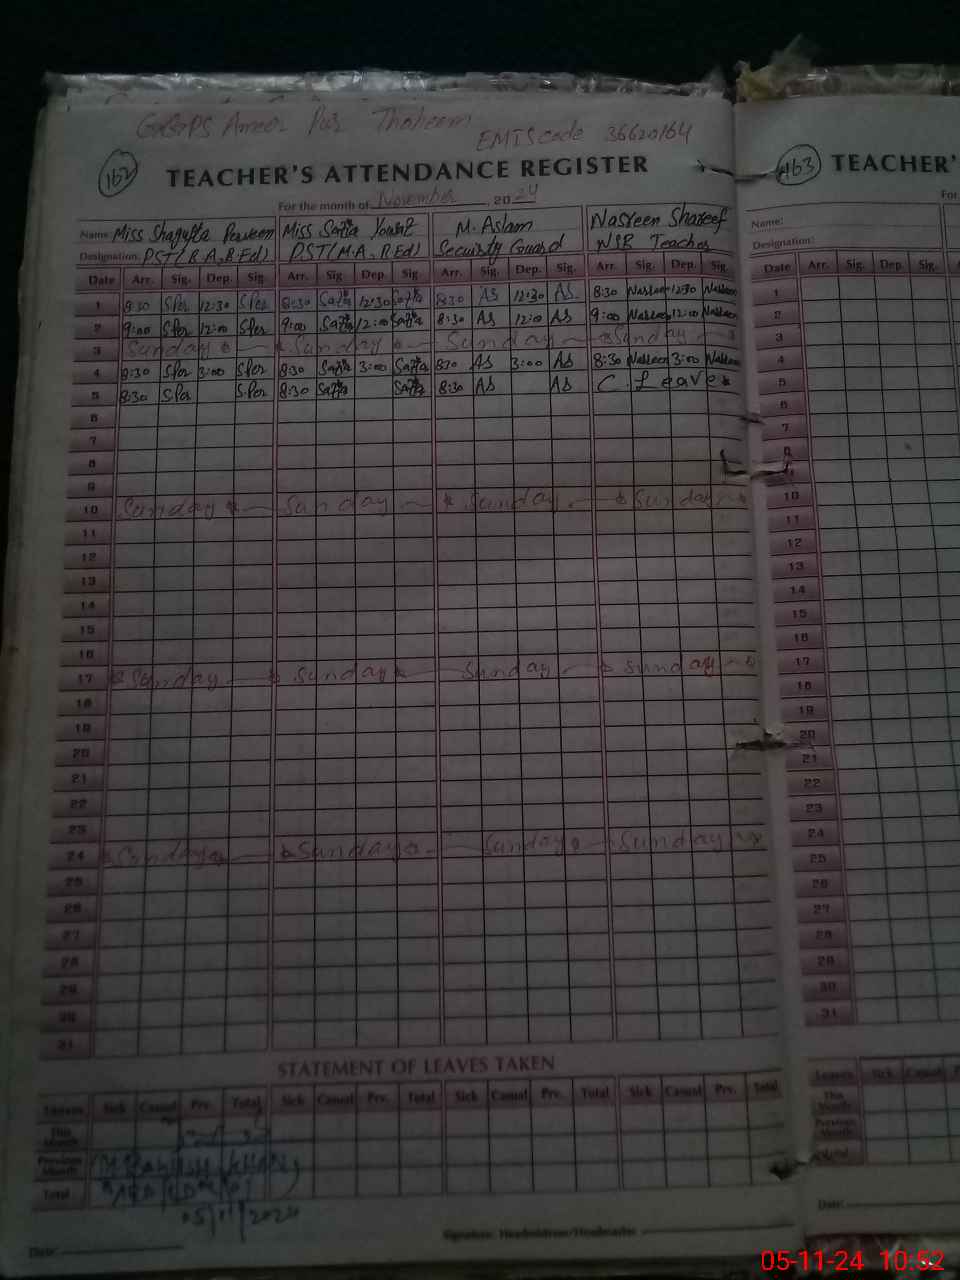 GGPS Ameer Pur Thaheem
EMIS code 36620164
162 TEACHER'S ATTENDANCE REGISTER
For the month of November, 2024
Name: Miss Shagufta Parveen Miss Safia Yousaf M. Aslam Nasreen Shareef
Designation: PST(B.A, B.Ed) PST(M.A, B.Ed) Security Guard NSB Teacher
Date Arr. Sig. Dep. Sig. Arr. Sig. Dep. Sig. Arr. Sig. Dep. Sig. Arr. Sig. Dep. Sig.
1 8:30 SPer 12:30 SPer 8:30 Safia 12:30 Safia 8:30 AS 12:30 AS 8:30 Nasreen 12:30 Nasreen
2 9:00 SPer 12:00 SPer 9:00 Safia 12:00 Safia 8:30 AS 12:00 AS 9:00 Nasreen 12:00 Nasreen
3 Sunday Sunday Sunday Sunday
4 8:30 SPer 3:00 SPer 8:30 Safia 3:00 Safia 8:30 AS 3:00 AS 8:30 Nasreen 3:00 Nasreen
5 8:30 SPer SPer 8:30 Safia Safia 8:30 AS AS C. Leave
6
7
8
9
10 Sunday Sunday Sunday Sunday
11
12
13
14
15
16
17 Sunday Sunday Sunday Sunday
18
19
20
21
22
23
24 Sunday Sunday Sunday Sunday
25
26
27
28
29
30
31
STATEMENT OF LEAVES TAKEN
Leaves Sick Casual Prv. Total Sick Casual Prv. Total Sick Casual Prv. Total Sick Casual Prv. Total
This Month
Previous Month
Total
05/11/2024
Signature: Headmistress/Headmaster
Date:
163 TEACHER'
For
Name:
Designation:
Date Arr. Sig. Dep. Sig.
1
2
3
4
5
6
7
8
9
10
11
12
13
14
15
16
17
18
19
20
21
22
23
24
25
26
27
28
29
30
31
Leaves Sick Casual
This Month
Previous Month
Total
Date:
05-11-24 10:52